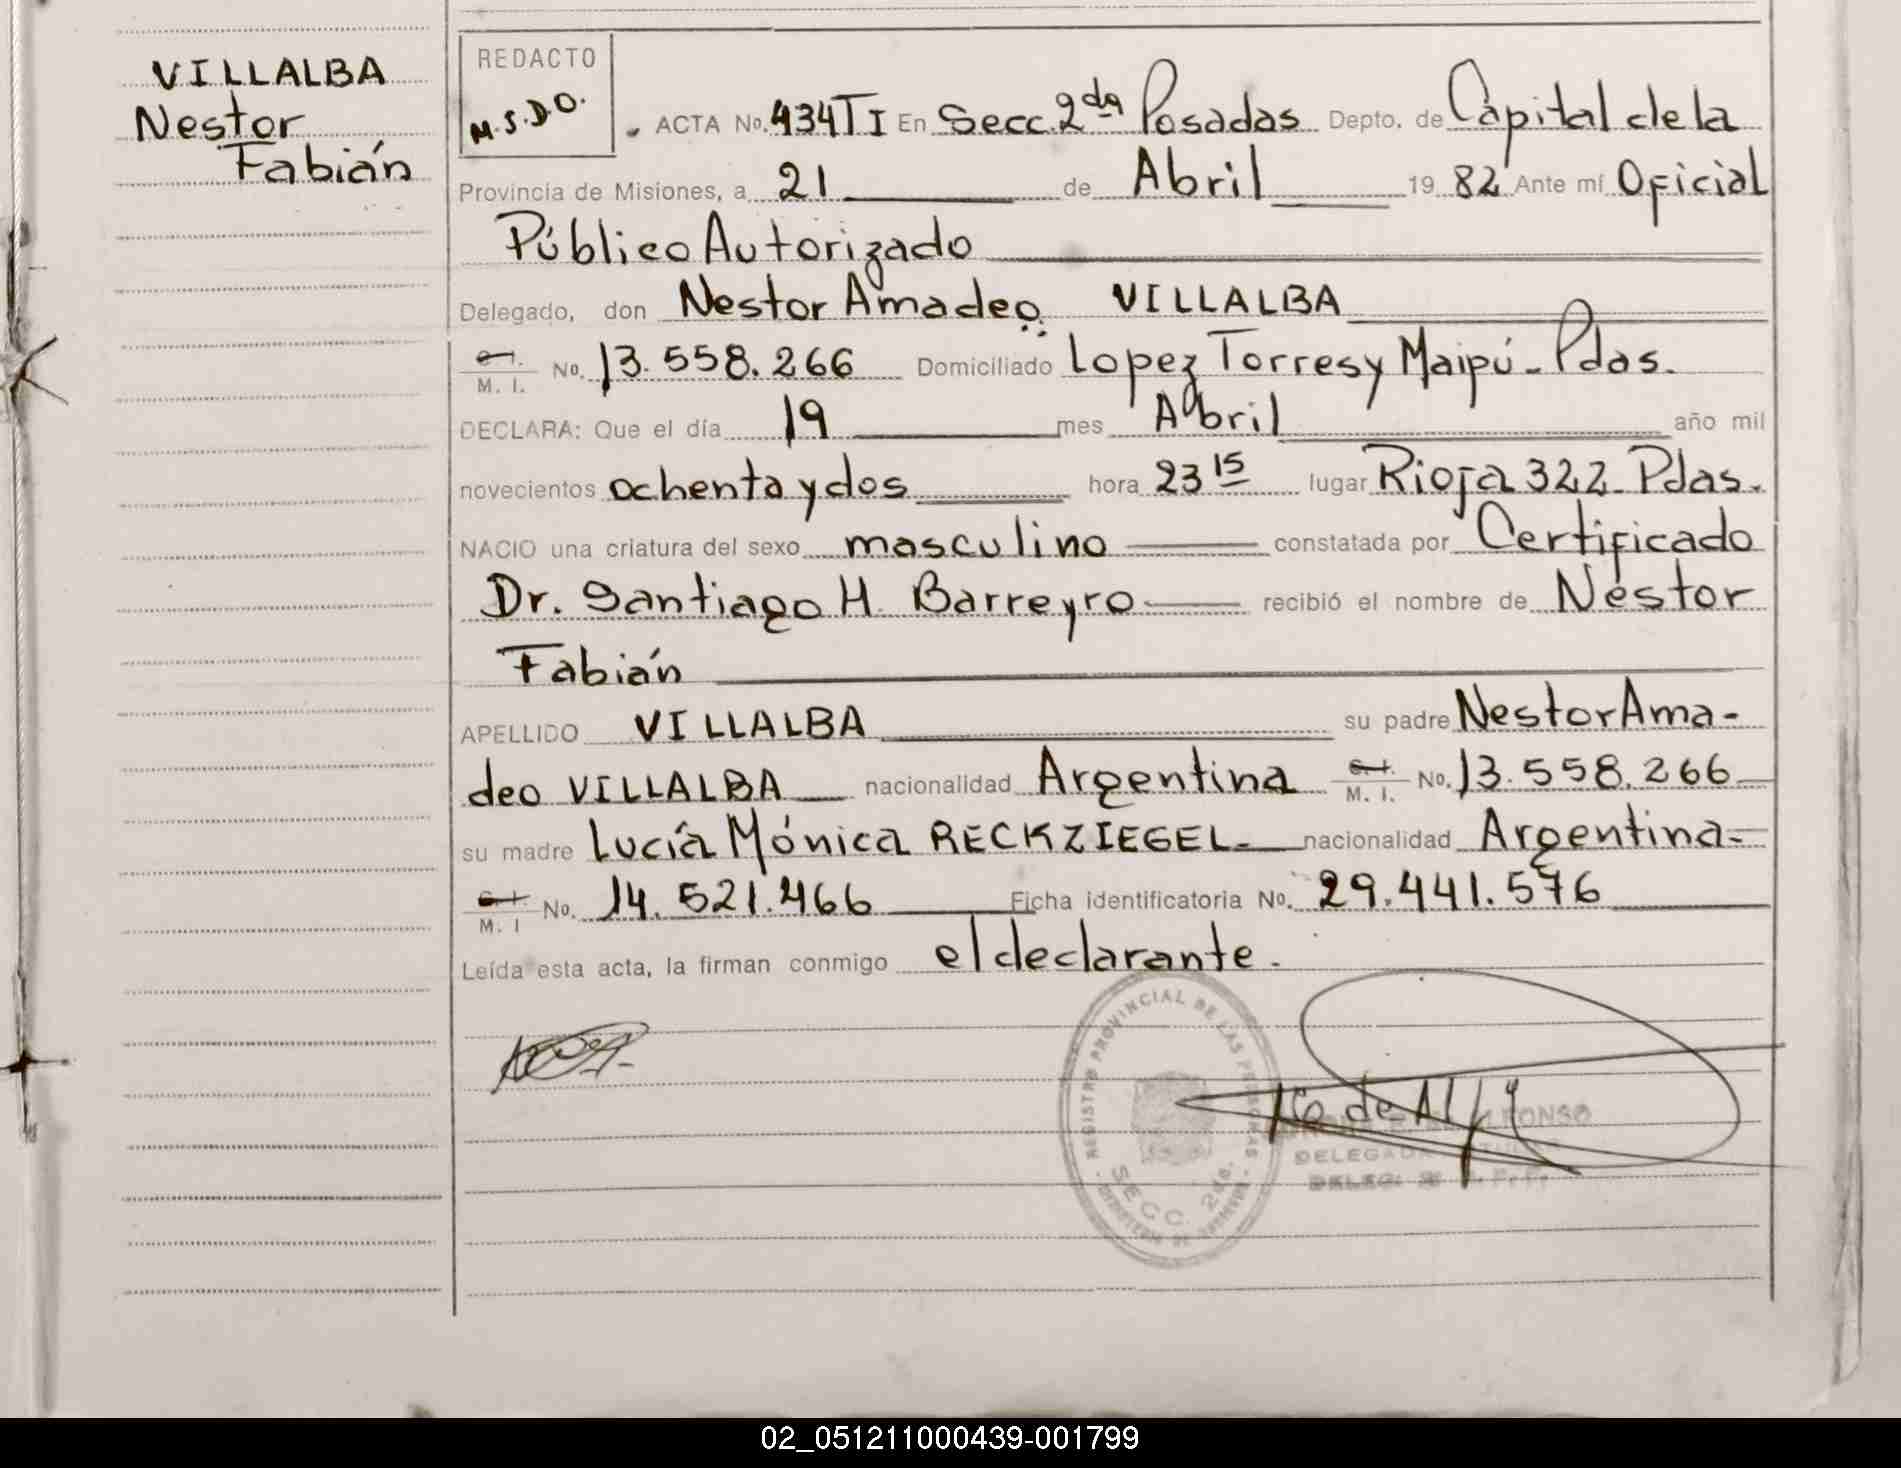 VILLALBA
Nestor
Fabián
REDACTO
M.S.D.O.
ACTA No. 434 T I En Secc. 2da Posadas Depto. de Capital de la
Provincia de Misiones, a 21 de Abril 19 82 Ante mí Oficial
Público Autorizado
Delegado, don Nestor Amadeo VILLALBA
C. I.
M. I. No. 13.558.266 Domiciliado Lopez Torres y Maipú - Pdas.
DECLARA: Que el día 19 mes Abril año mil
novecientos ochenta y dos hora 23 15 lugar Rioja 322 - Pdas.
NACIO una criatura del sexo masculino constatada por Certificado
Dr. Santiago H. Barreyro recibió el nombre de Néstor
Fabián
APELLIDO VILLALBA su padre Nestor Ama-
deo VILLALBA nacionalidad Argentina C. I. M. I. No. 13.558.266
su madre Lucía Mónica RECKZIEGEL - nacionalidad Argentina -
C. I.
M. I No. 14.521.466 Ficha identificatoria No. 29.441.576
Leída esta acta, la firman conmigo el declarante.
REGISTRO PROVINCIAL DE LAS PERSONAS
SECC. 2da.
DELEGADA TITULAR
02_051211000439-001799